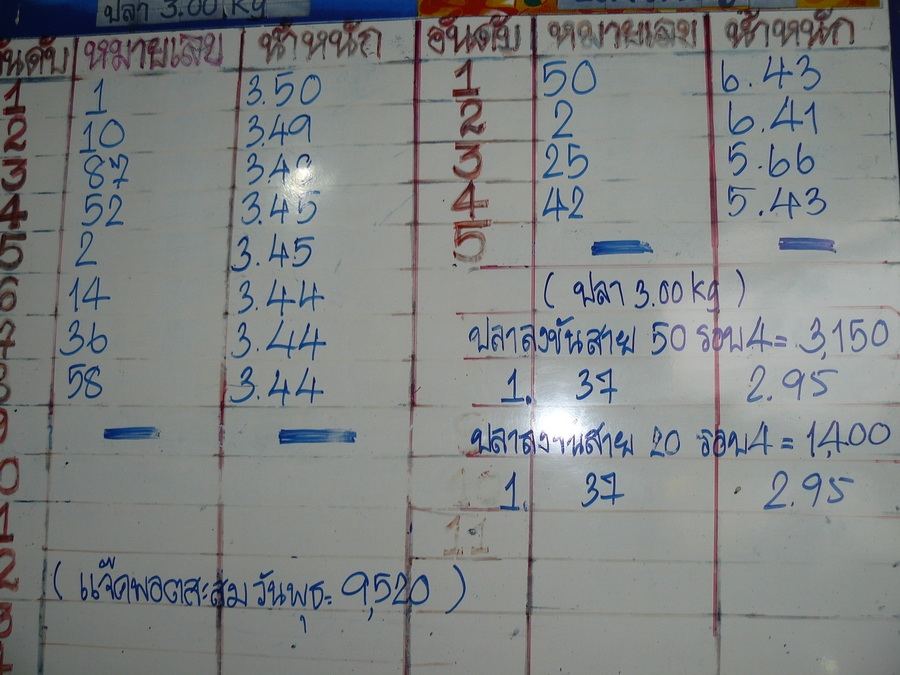 ปลา 3.00 kg
อันดับ หมายเลข น้ำหนัก
1 1 3.50
2 10 3.49
3 87 3.48
4 52 3.45
5 2 3.45
6 14 3.44
7 36 3.44
8 58 3.44
9
10
11
12
13
( แจ๊คพอตสะสม วันพุธ = 9,520 )
อันดับ หมายเลข น้ำหนัก
1 50 6.43
2 2 6.41
3 25 5.66
4 42 5.43
5
( ปลา 3.00 kg )
ปลาลงขันสาย 50 รอบ 4 = 3,150
1. 37 2.95
ปลาลงขันสาย 20 รอบ 4 = 1,400
1. 37 2.95
11